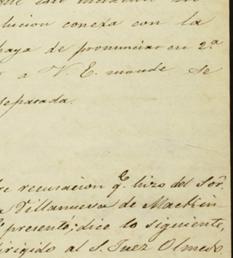 lucion conexa con la
haya de pronunciar en 2.ª
a V. E. mande se
separada.
recusacion q.e hizo del Sõr.
Villanueva de Mackin
presentó; dice lo siguiente,
dirigido al S. Juez Olmedo